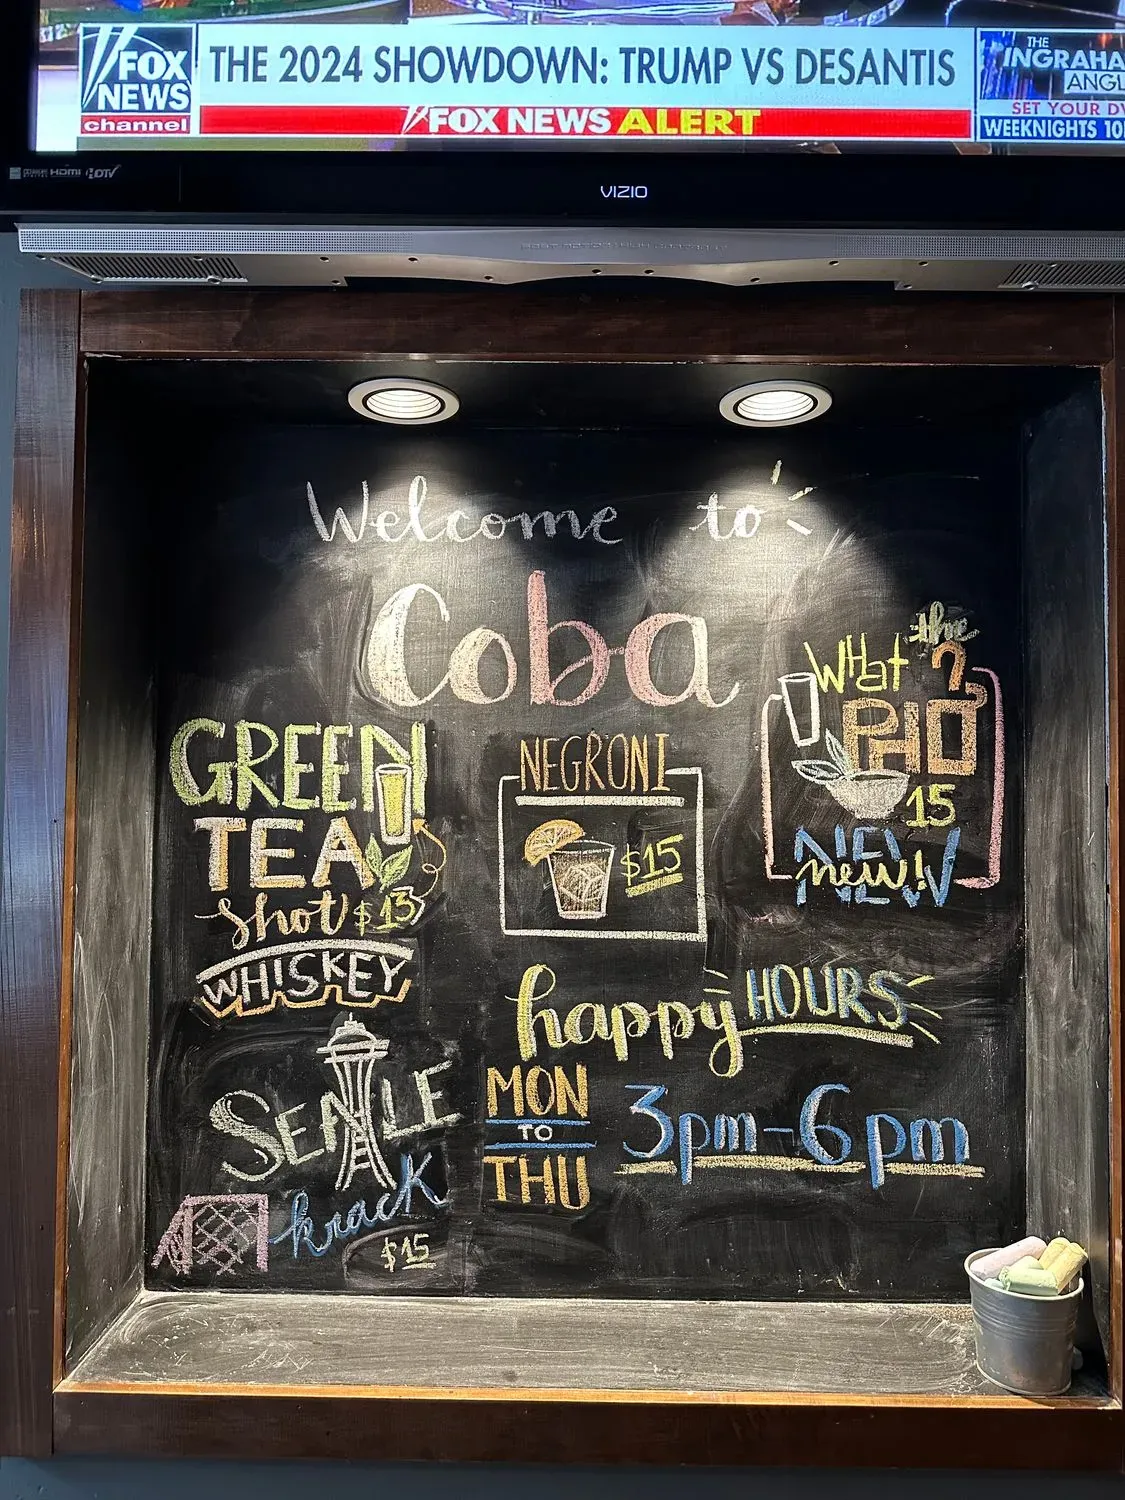 FOX
NEWS
channel
THE 2024 SHOWDOWN: TRUMP VS DESANTIS
FOX NEWS ALERT
THE
INGRAHA
ANGL
SET YOUR DV
WEEKNIGHTS 10
HDMI HDTV
VIZIO
Welcome to
Coba
GREEN
TEA
shot $13
WHISKEY
NEGRONI
$15
What the
PHO ?
15
NEW
new!
happy HOURS
MON
TO
THU
3pm-6pm
SEATTLE
krack
$15